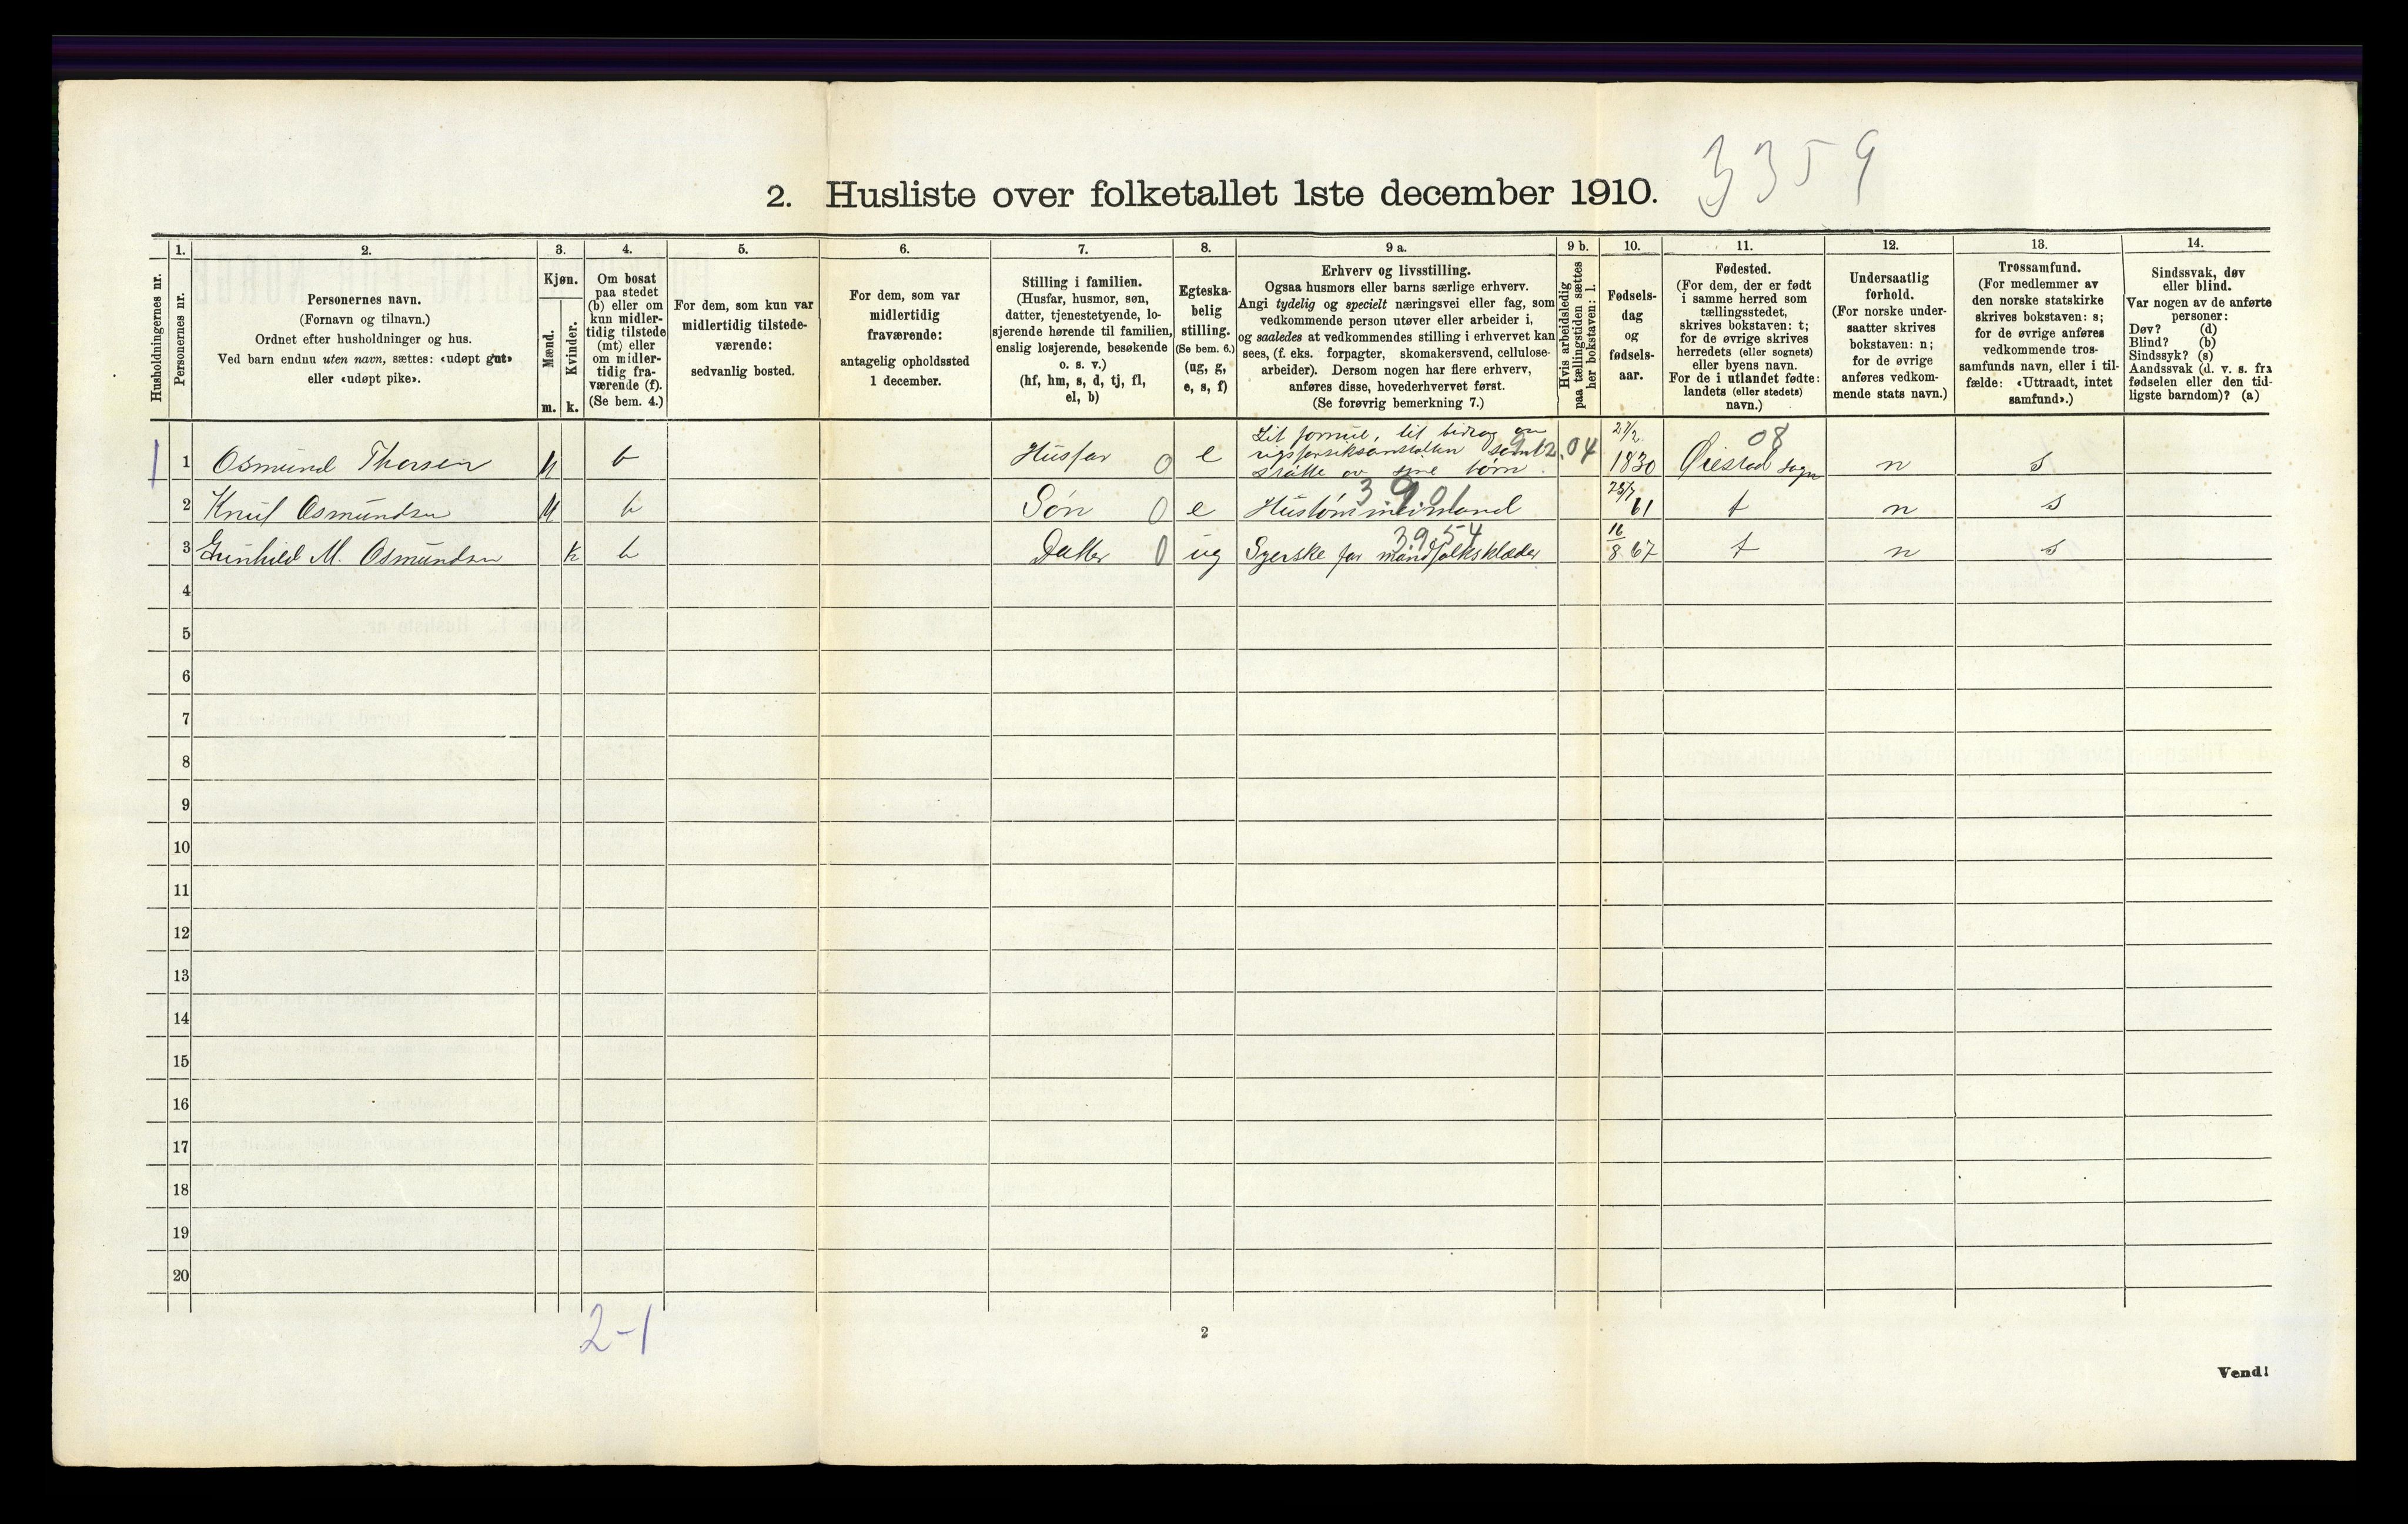 3359
2. Husliste over folketallet 1ste december 1910.
Husholdningernes nr.
1.
Personernes nr.
2.
Personernes navn.
(Fornavn og tilnavn.)
Ordnet efter husholdninger og hus.
Ved barn endnu uten navn, sættes: «udøpt gut»
eller «udøpt pike».
3.
Kjøn.
Mænd.
Kvinder.
m. k.
4.
Om bosat
paa stedet
(b) eller om
kun midler-
tidig tilstede
(mt) eller
om midler-
tidig fra-
værende (f).
(Se bem. 4.)
5.
For dem, som kun var
midlertidig tilstede-
værende:
sedvanlig bosted.
6.
For dem, som var
midlertidig
fraværende:
antagelig opholdssted
1 december.
7.
Stilling i familien.
(Husfar, husmor, søn,
datter, tjenestetyende, lo-
sjerende hørende til familien,
enslig losjerende, besøkende
o. s. v.)
(hf, hm, s, d, tj, fl,
el, b)
8.
Egteska-
belig
stilling.
(Se bem. 6.)
(ug, g,
e, s, f)
9 a.
Erhverv og livsstilling.
Ogsaa husmors eller barns særlige erhverv.
Angi tydelig og specielt næringsvei eller fag, som
vedkommende person utøver eller arbeider i,
og saaledes at vedkommendes stilling i erhvervet kan
sees, (f. eks. forpagter, skomakersvend, cellulose-
arbeider). Dersom nogen har flere erhverv,
anføres disse, hovederhvervet først.
(Se forøvrig bemerkning 7.)
9 b.
Hvis arbeidsledig
paa tællingstiden sættes
her bokstaven: l.
10.
Fødsels-
dag
og
fødsels-
aar.
11.
Fødested.
(For dem, der er født
i samme herred som
tællingsstedet,
skrives bokstaven: t;
for de øvrige skrives
herredets (eller sognets)
eller byens navn.
For de i utlandet fødte:
landets (eller stedets)
navn.)
12.
Undersaatlig
forhold.
(For norske under-
saatter skrives
bokstaven: n;
for de øvrige
anføres vedkom-
mende stats navn.)
13.
Trossamfund.
(For medlemmer av
den norske statskirke
skrives bokstaven: s;
for de øvrige anføres
vedkommende tros-
samfunds navn, eller i til-
fælde: «Uttraadt, intet
samfund».)
14.
Sindssvak, døv
eller blind.
Var nogen av de anførte
personer:
Døv? (d)
Blind? (b)
Sindssyk? (s)
Aandssvak (d. v. s. fra
fødselen eller den tid-
ligste barndom)? (a)
1 1 Osmund Thorsen M b Husfar 0 e Lit formue, lit bidrag samt støtte av sine børn 04 27/2 1830 Øiestad sogn 08 n s
2 Knut Osmundsen M b Søn 0 e 39.01 28/7 61 t n s
3 Gunhild M. Osmundsen k b Datter 0 ug Syerske for mandfolksklæder 39.54 16/8 67 t n s
4
5
6
7
8
9
10
11
12
13
14
15
16
17
18
19
20
2-1
2
Vend!